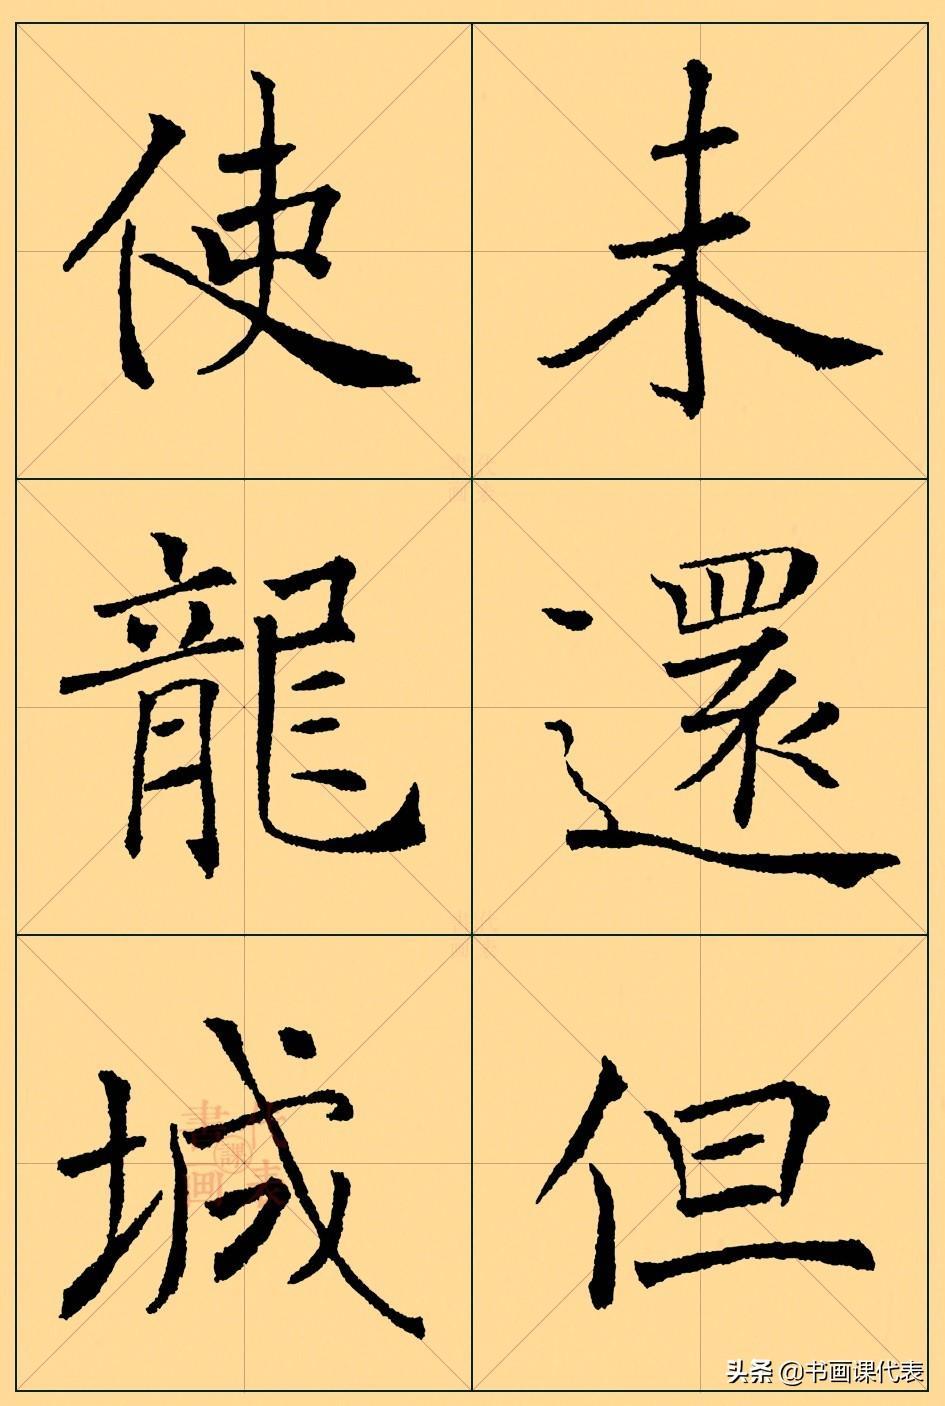 未還但
使龍城
書画課代表
头条 @书画课代表